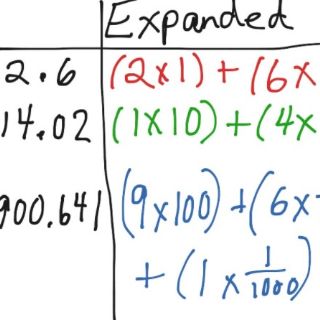 Expanded
2.6 (2x1) + (6x
14.02 (1x10)+(4x
900.641 (9x100)+(6x
+ (1 x 1/1000)